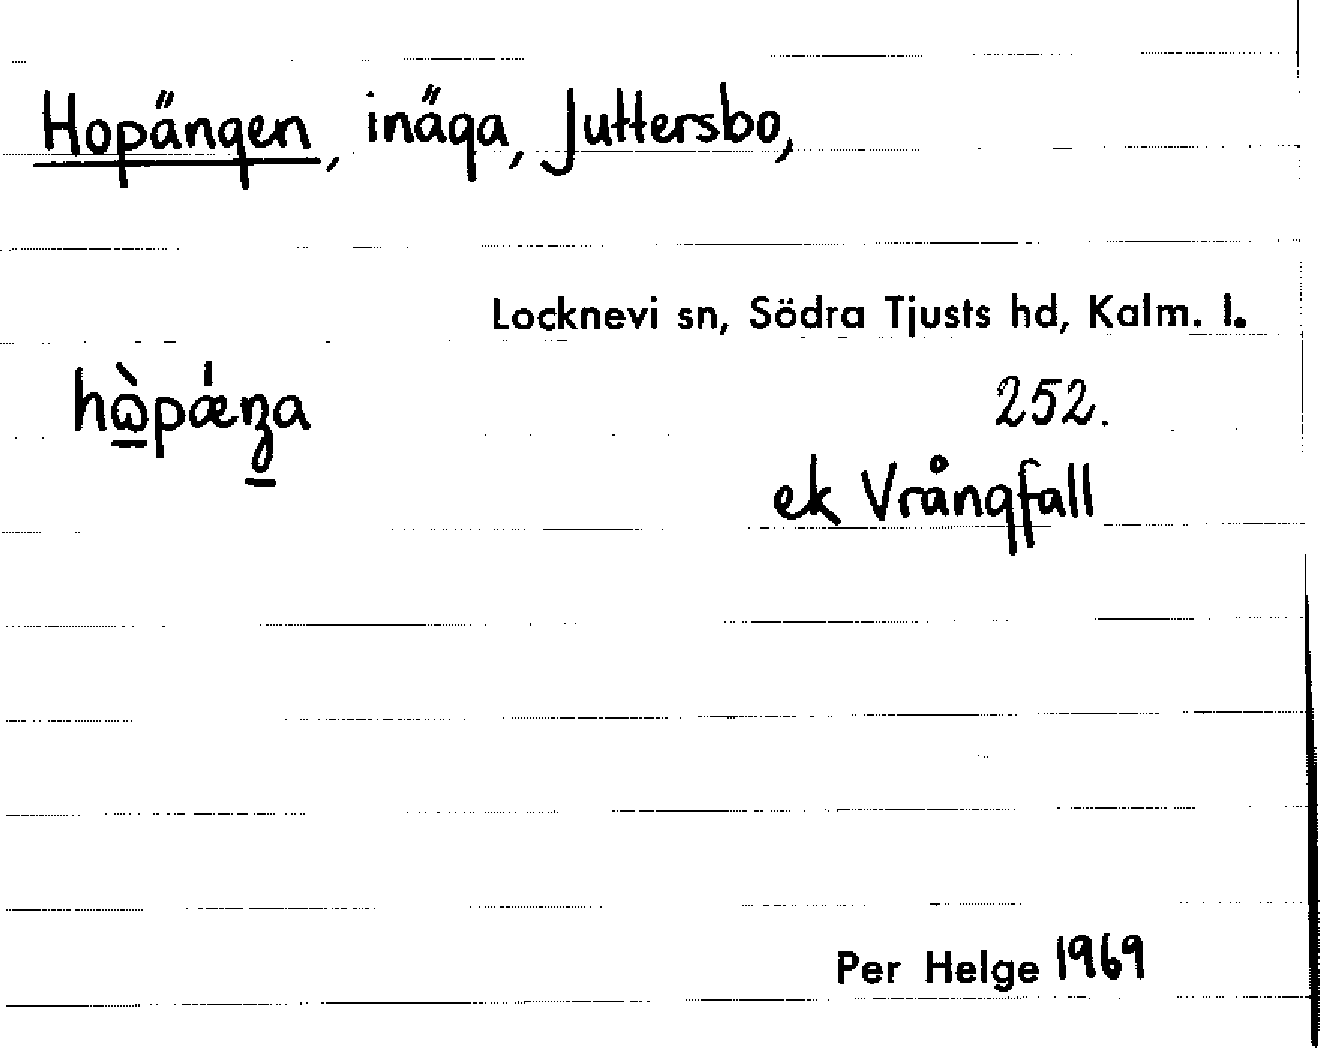 Hopängen, inäga, Juttersbo,
Locknevi sn, Södra Tjusts hd, Kalm. l.
hὼ̲pǽŋ̲a
252.
ek Vrångfall
Per Helge 1969